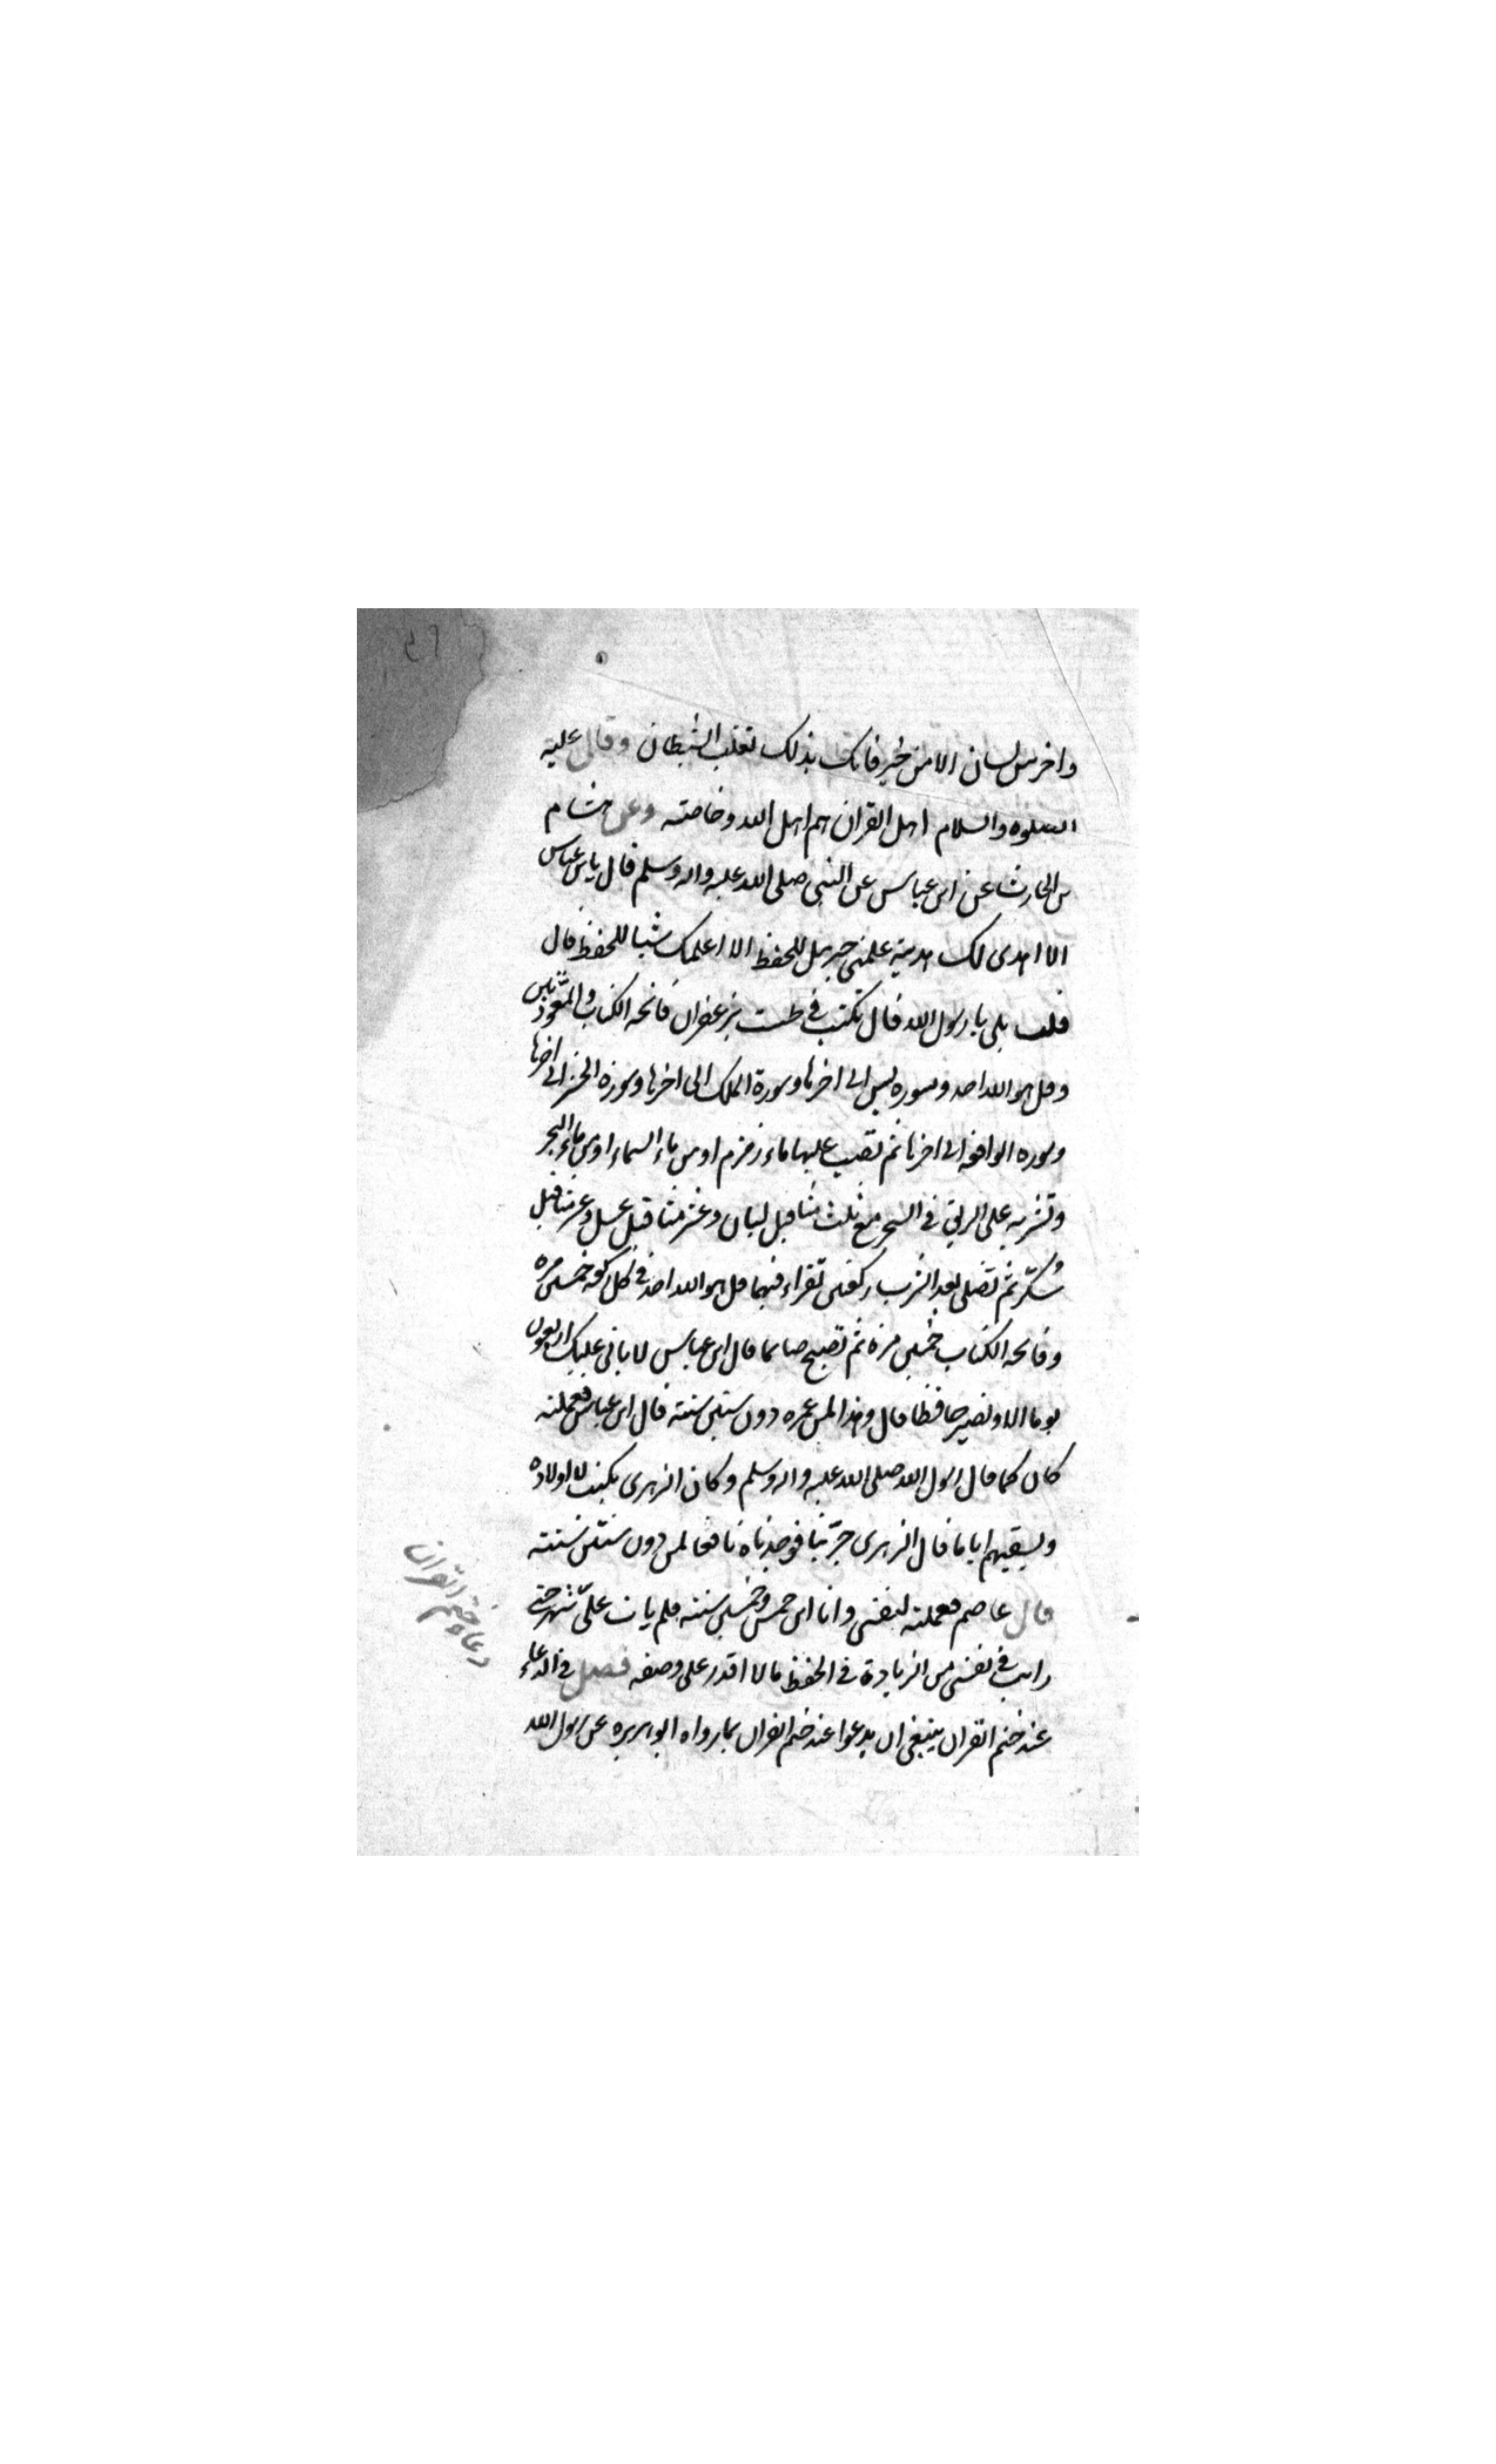 واخرس لسان الا من خير فانك بذلك تغلب الشيطان وقال عليه
الصلوه والسلام اهل القران هم اهل الله وخاصته وعن هشام
بن الحارث عن ابن عباس عن النبي صلى الله عليه واله وسلم قال يا بن عباس
الا اهدى لك هدية علمنى جبريل للحفظ الا اعلمك شيا للحفظ قال
قلت بلى يا رسول الله قال تكتب فى طست بزعفران فاتحه الكتاب والمعوذتين
وقل هو الله احد وسوره يس الى اخرها وسورة الملك الى اخرها وسورة الحشر الى اخرها
وسوره الواقعه الى اخرها ثم تصب عليها ماء زمزم او من ماء السماء او من ماء البحر
وتشربه على الريق فى السحر مع ثلث مثاقيل لبان وعشر مثاقيل عسل وعشر مثاقيل
سُكّر ثم تصلى بعد الشرب ركعتين تقراء فيهما قل هو الله احد فى كل ركعه خمسين مره
وفاتحه الكتاب خمسين مرة ثم تصبح صايما قال ابن عباس لا ياتى عليك اربعون
يوما الا وتصير حافظا قال وهذا لمن عمره دون ستين سنته قال ابن عباس فعملته
كان كما قال رسول الله صلى الله عليه واله وسلم وكان الزهرى يكتب لاولاده
ويسقيهم اياما قال الزهرى جرّبنا فوجدناه نافعا لمن دون ستين سنته
قال عاصم فعملته لنفسى وانا ابن خمس وخمسين سنته فلم يات علىّ شهر حتى
رايت فى نفسى من الزيادة فى الحفظ ما لا اقدر على وصفه فصل فى الدعاء
عند ختم القران ينبغى ان يدعوا عند ختم القران بما رواه ابو هريره عن رسول الله
دعاء ختم القران